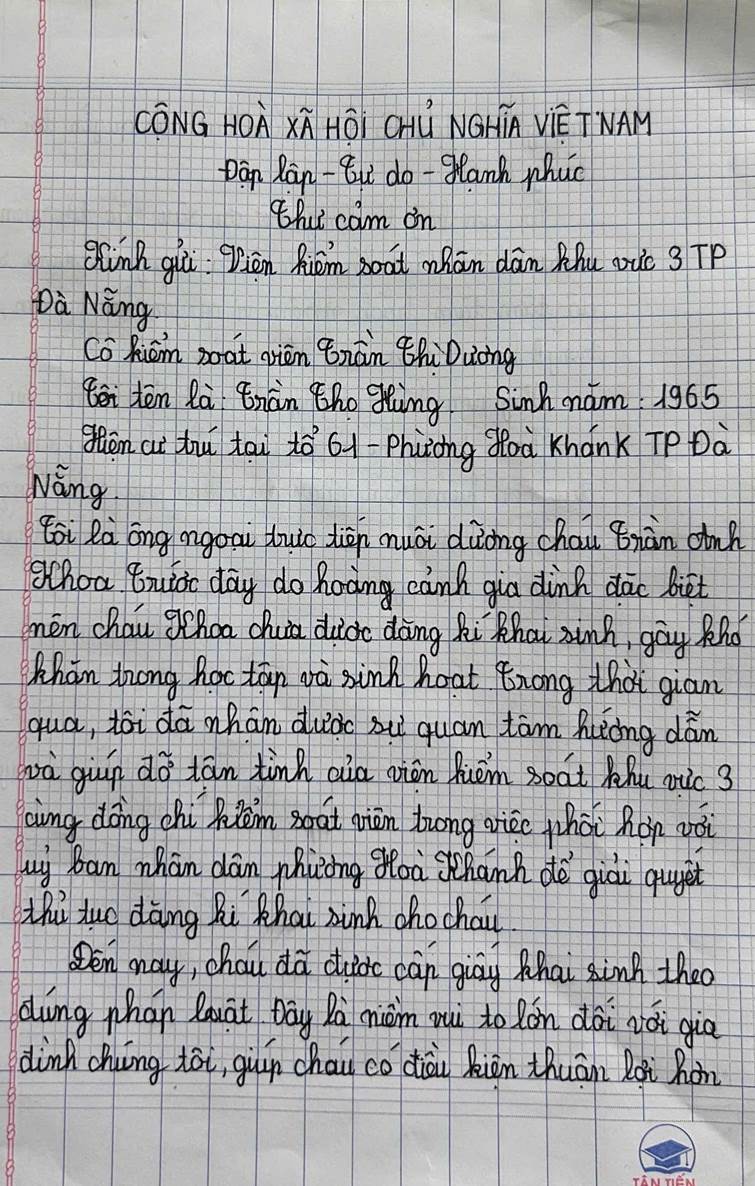 CỘNG HOÀ XÃ HỘI CHỦ NGHĨA VIỆT NAM
Độc lập - Tự do - Hạnh phúc
Thư cảm ơn
Kính gửi: Viện kiểm soát nhân dân khu vực 3 TP
Đà Nẵng.
Cô kiểm soát viên Trần Thị Dương
Tôi tên là: Trần Thọ Hùng. Sinh năm: 1965
Hiện cư trú tại tổ 61 - Phường Hoà Khánh TP Đà
Nẵng.
Tôi là ông ngoại trực tiếp nuôi dưỡng cháu Trần Anh
Khoa Trước đây do hoàng cảnh gia đình đặc biệt
nên cháu Khoa chưa được đăng kí khai sinh, gây khó
khăn trong học tập và sinh hoạt Trong thời gian
qua, tôi đã nhận được sự quan tâm hướng dẫn
và giúp đỡ tận tình của viện kiểm soát khu vực 3
cùng đồng chí kiểm soát viên trong việc phối hợp với
uỷ ban nhân dân phường Hoà Khánh để giải quyết
thủ tục đăng kí khai sinh cho cháu.
Đến nay, cháu đã được cấp giấy khai sinh theo
đúng pháp luật. Đây là niềm vui to lớn đối với gia
đình chúng tôi, giúp cháu có điều kiện thuận lợi hơn
TÂN TIẾN